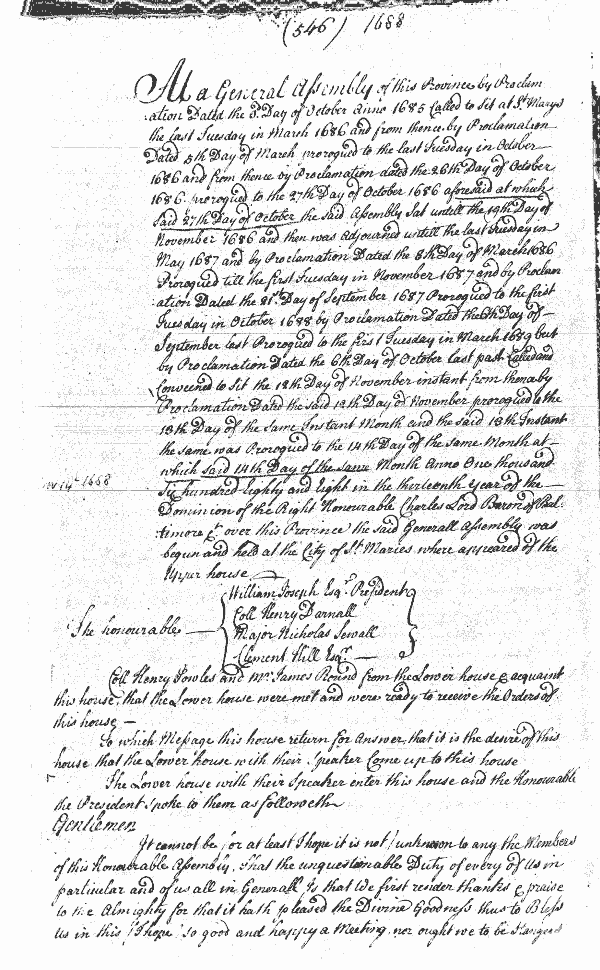 (546) 1688
At a General Assembly of this Province by Proclam
ation Dated the 3d. Day of October Anno 1685 Called to Sit at St. Marys
the last Tuesday in March 1686 and from thence by Proclamation
Dated 5th Day of March prorogued to the last Tuesday in October
1686 and from thence by Proclamation dated the 26th Day of October
1686 prorogued to the 27th Day of October 1686 aforesaid at which
Said 27th Day of October the said Assembly Sat untill the 19th Day of
November 1686 and then was adjourned untill the last Tuesday in
May 1687 and by Proclamation Dated the 8th Day of March 1686
Prorogued till the first Tuesday in November 1687 and by Proclam
ation Dated the 21st. Day of September 1687 Prorogued to the first
Tuesday in October 1688 by Proclamation Dated the Day of
September last Prorogued to the first Tuesday in March 1689 but
by Proclamation Dated the 6th Day of October last past Called and
Convened to Sit the 12th Day of November instant from thence by
Proclamation Dated the said 12th Day of November prorogued to the
13th Day of the Same Instant Month and the said 13th Instant
the same was Prorogued to the 14th Day of the Same Month at
which said 14th Day of the same Month Anno One thousand
Nov 14th 1688
Six hundred Eighty and Eight in the thirteenth Year of the
Dominion of the Right Honourable Charles Lord Baron of Bal
timore &c over this Province the said Generall Assembly was
begun and held at the City of St. Maries where appeared of the
Upper house
The honourable
William Joseph Esqr. President
Coll Henry Darnall
Major Nicholas Sewall
Clement Hill Esqr.
Coll Henry Jowles and Mr. James Round from the Lower house & acquaint
this house, that the Lower house were met and were ready to receive the Orders of
this house
To which Message this house return for Answer, that it is the desire of this
house that the Lower house with their Speaker Come up to this house
The Lower house with their Speaker enter this house and the Honourable
the President Spoke to them as followeth
Gentlemen
It cannot be (or at least I hope it is not) unknown to any the Members
of this Honourable Assembly, That the unquestionable Duty of every of us in
particular and of us all in Generall, Is that We first render thanks & praise
to the Almighty for that it hath pleased the Divine Goodness thus to Bless
us in this (I hope) so good and happy a Meeting, nor ought we to be